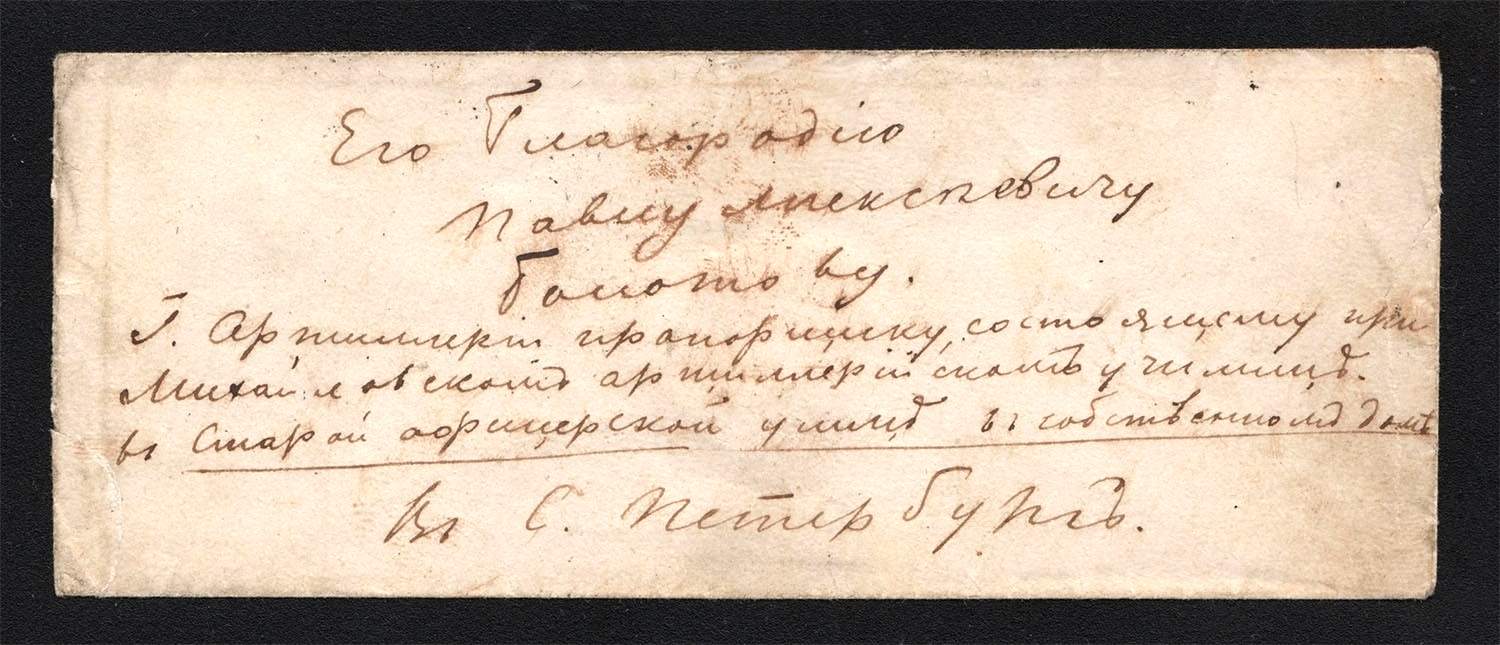 Его Благородiю
Павлу Алексѣевичу
Болотову.
Г. Артиллерiи прапорщику, состоящему при
Михайловскомъ артиллерiйскомъ училищѣ.
въ Старой офицерской улицѣ въ собственномъ домѣ
Въ С. Петербургѣ.